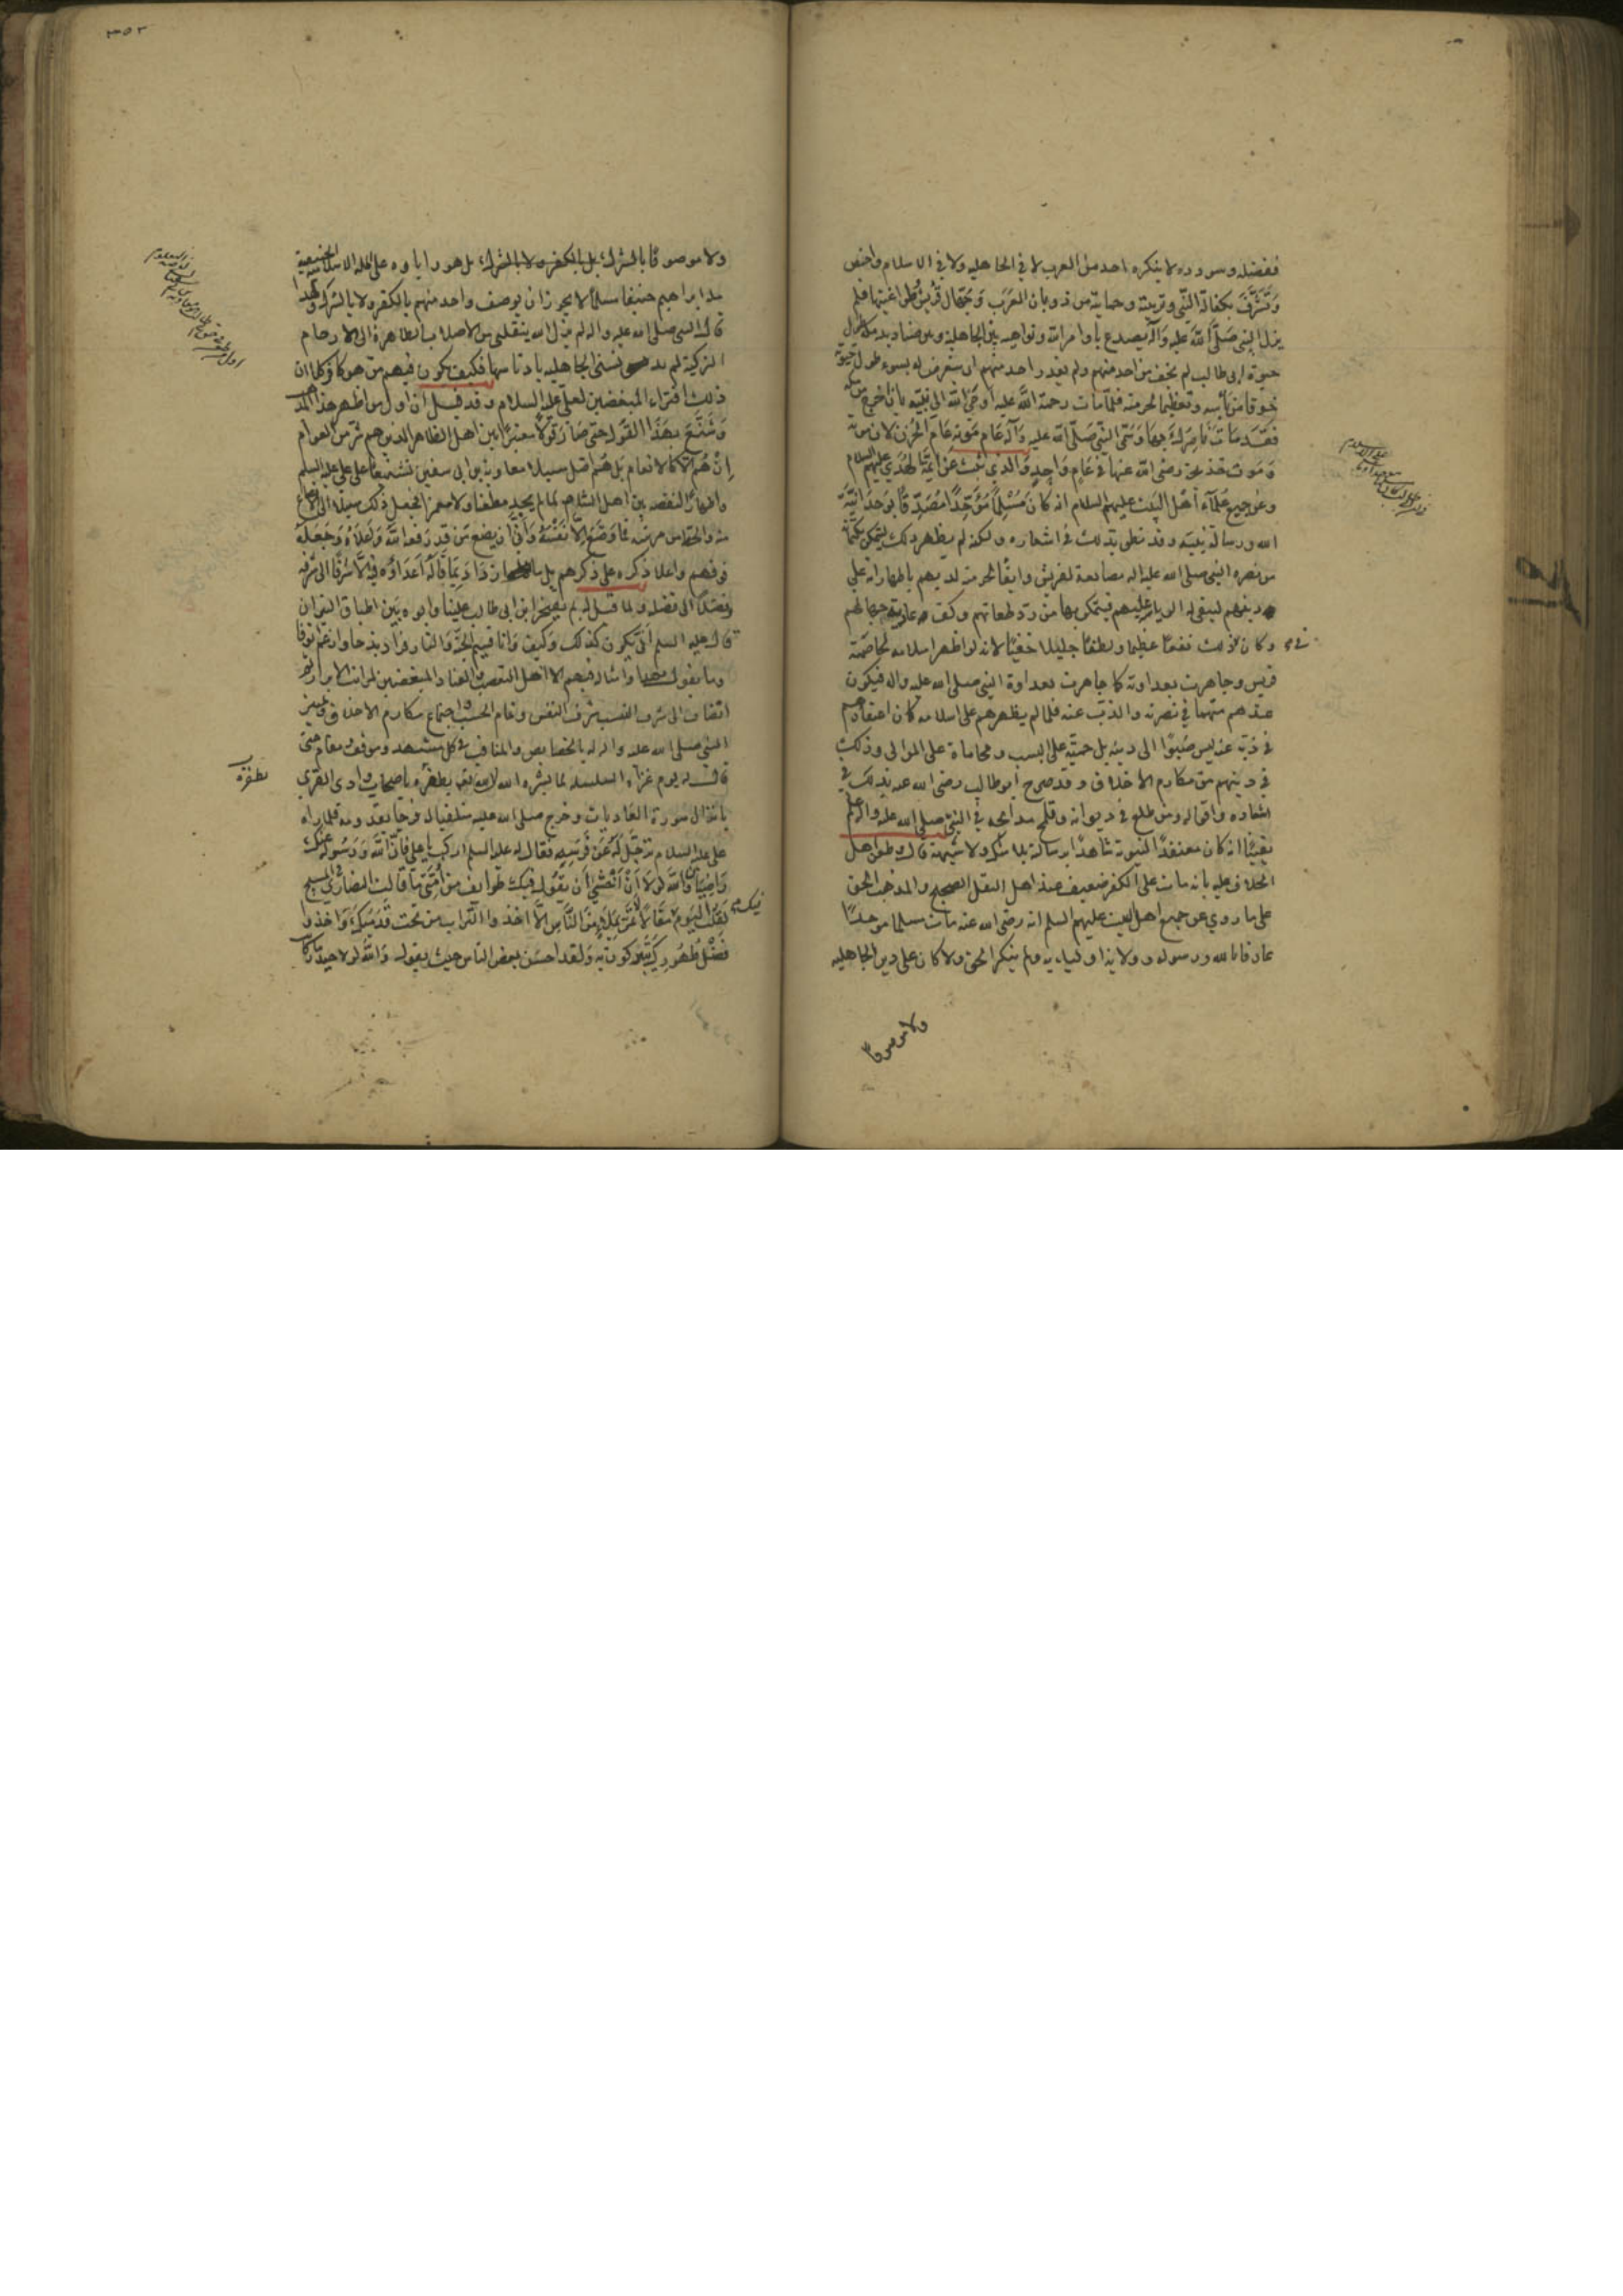 ففضله وسودده لا ينكره احد من العرب لا في الجاهليه ولا في الاسلام واختص
وتشرف بكفالة النبي وتربيته وحمايته من ذوبان العرب وجهال قريش وطواغيتها فلم
يزل النبي صلى الله عليه وآله يصدع باوامر الله ونواهيه بين الجاهلية وبين صناديد مكة طول
حيوة ابي طالب لم يخف من احد منهم ولم يقدر احد منهم ان يتعرض له بسوء طول حيوته
خوفا من بأسه وتعظيما لحرمته فلما مات رحمة الله عليه اوحى الله الى نبيه بان اخرج من مكة
فقد مات ناصرك بها وسمى النبي صلى الله عليه وآله عام موته عام الحزن لان موته
وموت خديجة رضي الله عنها في عام واحد والذي ثبت عن ائمة الهدى عليهم السلام
وعن جميع علماء اهل البيت عليهم السلام انه كان مسلما موحدا مصدقا بوحدانية
الله ورسالة نبيه وقد نطق بذلك في اشعاره ولكنه لم يظهر ذلك ليتمكن بكتمانه
من نصره النبي صلى الله عليه اله مصانعة لقريش وابقا لحرمته لديهم باظهار انه على
دينهم ليبقى له الرياسة عليهم فيتمكن بها من رد طغاتهم وكف عادية جهالهم
وكان في ذلك نفعا عظيما ولطفا جليلا خفيا لانه لو اظهر اسلامه لخاصمته
قريش وجاهرت بعداوته كما جاهرت بعداوة النبي صلى الله عليه واله فيكون
عندهم متهما في نصرته والذب عنه فلما لم يظهرهم على اسلامه كان اعتقادهم
في ذبه عنه ليس صبوا الى دينه بل حمية على النسب ومحاماة على الموالى وذلك
في دينهم من مكارم الاخلاق وقد صرح ابو طالب رضي الله عنه بذلك في
اشعاره واقواله ومن طلع في ديوانه وقلمح مدايحه في النبي صلى الله عليه واله علم
يقينا انه كان معتقدا لنبوته شاهدا برسالته بلا شك ولا شبهة قال وطعن اهل
الخلاف عليه بانه مات على الكفر ضعيف عند اهل النقل الصحيح والمذهب الحق
على ما روي عن جميع اهل البيت عليهم السلم انه رضي الله عنه مات مسلما موحدا
عارفا بالله ورسوله وولايه اوليايه ولم ينكر الحق ولا كان على دين الجاهليه
ولا موصوفا
ولا موصوفا بالشرك بل بالكفر ولا بالشرك بل هو واباوه على المله الاسلاميه الحنيفية
ملة ابراهيم حنيفا مسلما لا يجوز ان يوصف واحد منهم بالكفر ولا بالشرك ولهذا
قال النبي صلى الله عليه واله لم يزل الله ينقلني من الاصلاب الطاهرة الى الارحام
الزكية لم يدنسني الجاهليه بادناسها فكيف يكون فيهم من هو كافر كلا ان
ذلك افتراء المبغضين لعلي عليه السلام وقد قيل ان اول من اظهر هذا المذهب
وشنع بهذا القول حتى صار قولا معتبرا بين اهل الظاهر الذين هم شر من العوام
ان هم الا كالانعام بل هم اضل سبيلا معاوية بن ابي سفين تشنيعا على علي عليه السلم
واظهارا لنقصه بين اهل الشام لما لم يجد مطعنا ولا مغمزا فجعل ذلك سبيلا الى
منه والحط من مرتبته فما وضع الا نفسه وانى ان يضع من قد رفعه الله واعلاه وجعله
فوقهم واعلا ذكره على ذكرهم بل ازداد بما قاله اعداؤه فيه الا شرفا الى شرفه
وفضلا الى فضله ولما قيل له بم يفتخر ابن ابي طالب علينا وابوه بين اطباق النيران
قال عليه السلم انى يكون كذلك وكيف وانا قسيم الجنة والنار
وما يقول هذا وامثاله فيهم الا اهل التعصب والعناد المبغضين لمراتب الابرار
انضاف الى شرف النسب شرف النفس وتمام الحسب اجتماع مكارم الاخلاق وتمييز
النبي صلى الله عليه واله له بالخصايص والمناقب في كل مشهد وموقف مقام حتى
قال له يوم غزاة السلسله لما بشره الله بظفره باصحاب وادي القرى
بانزال سورة العاديات وخرج صلى الله عليه متلقيا له فرحا بقدومه فلما راه
علي عليه السلام ترجل له عن فرسه فقال له عليه السلم اركب يا علي فان الله ورسوله عنك
راضيان والله لولا ان اخشى ان يقول فيك طوايف من امتي ما قالت النصارى في المسيح
لقلت فيك اليوم مقالا لا تمر بملاء من الناس الا اخذوا التراب من تحت قدميك واخذوا
فضل طهورك يتبركون به ولقد احسن بعض الناس حيث يقول والله لولا حيدر ما كان
بظفره
فيك